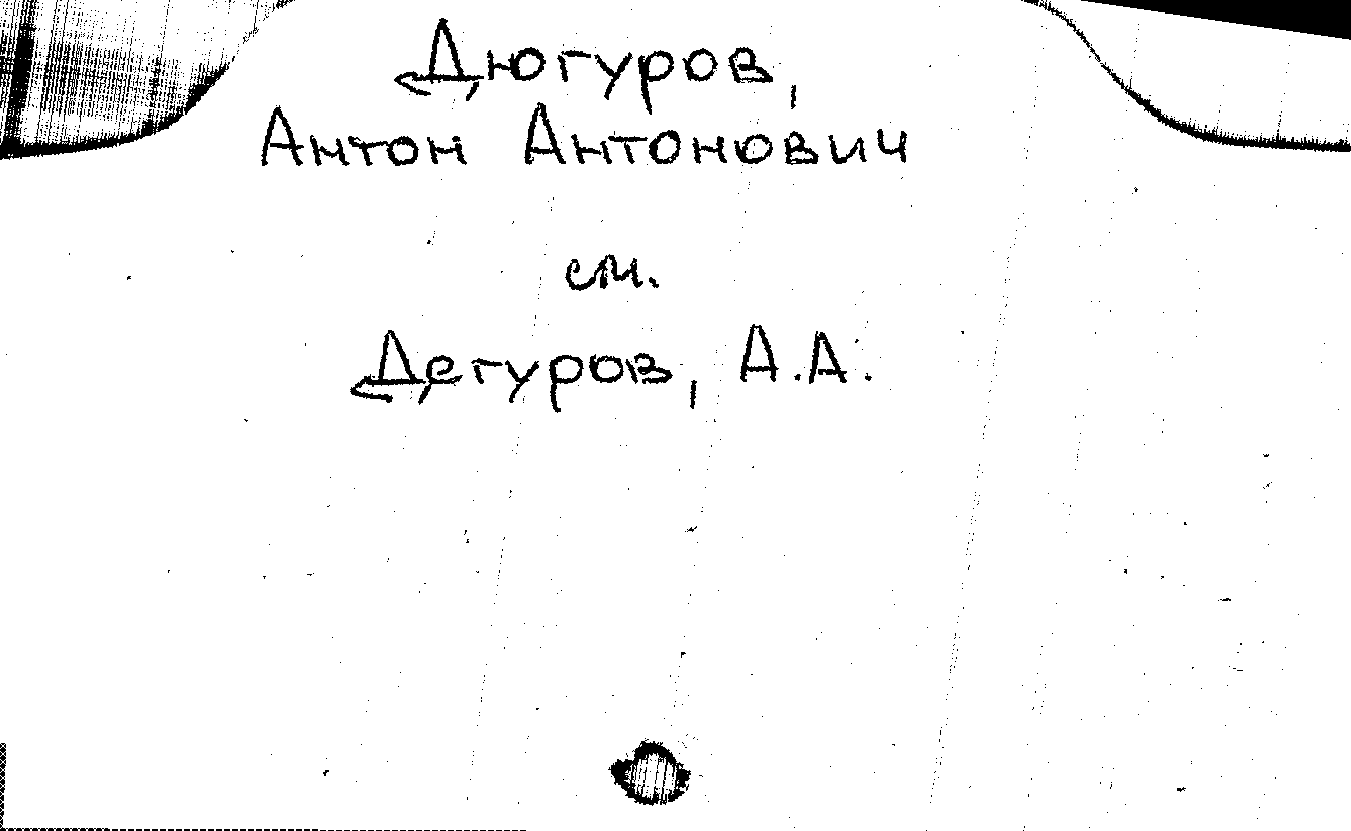 Дюгуров,
Антон Антонович
см.
Дегуров, А.А.